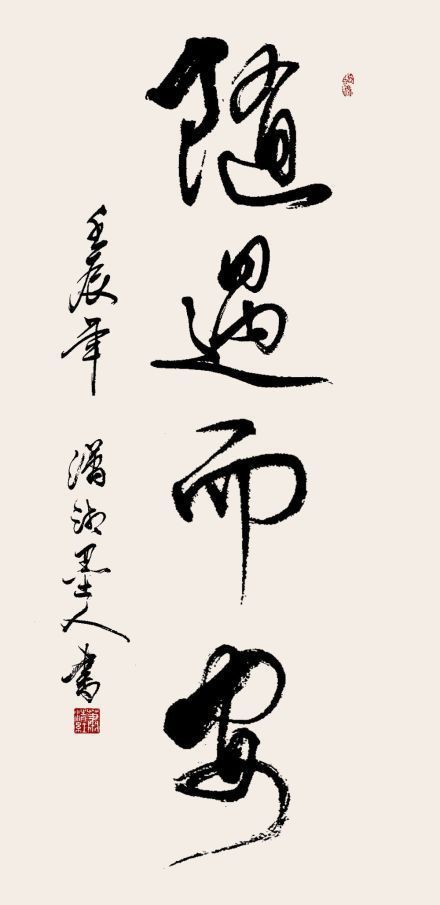 随遇而安
壬辰年 潇湘墨人书